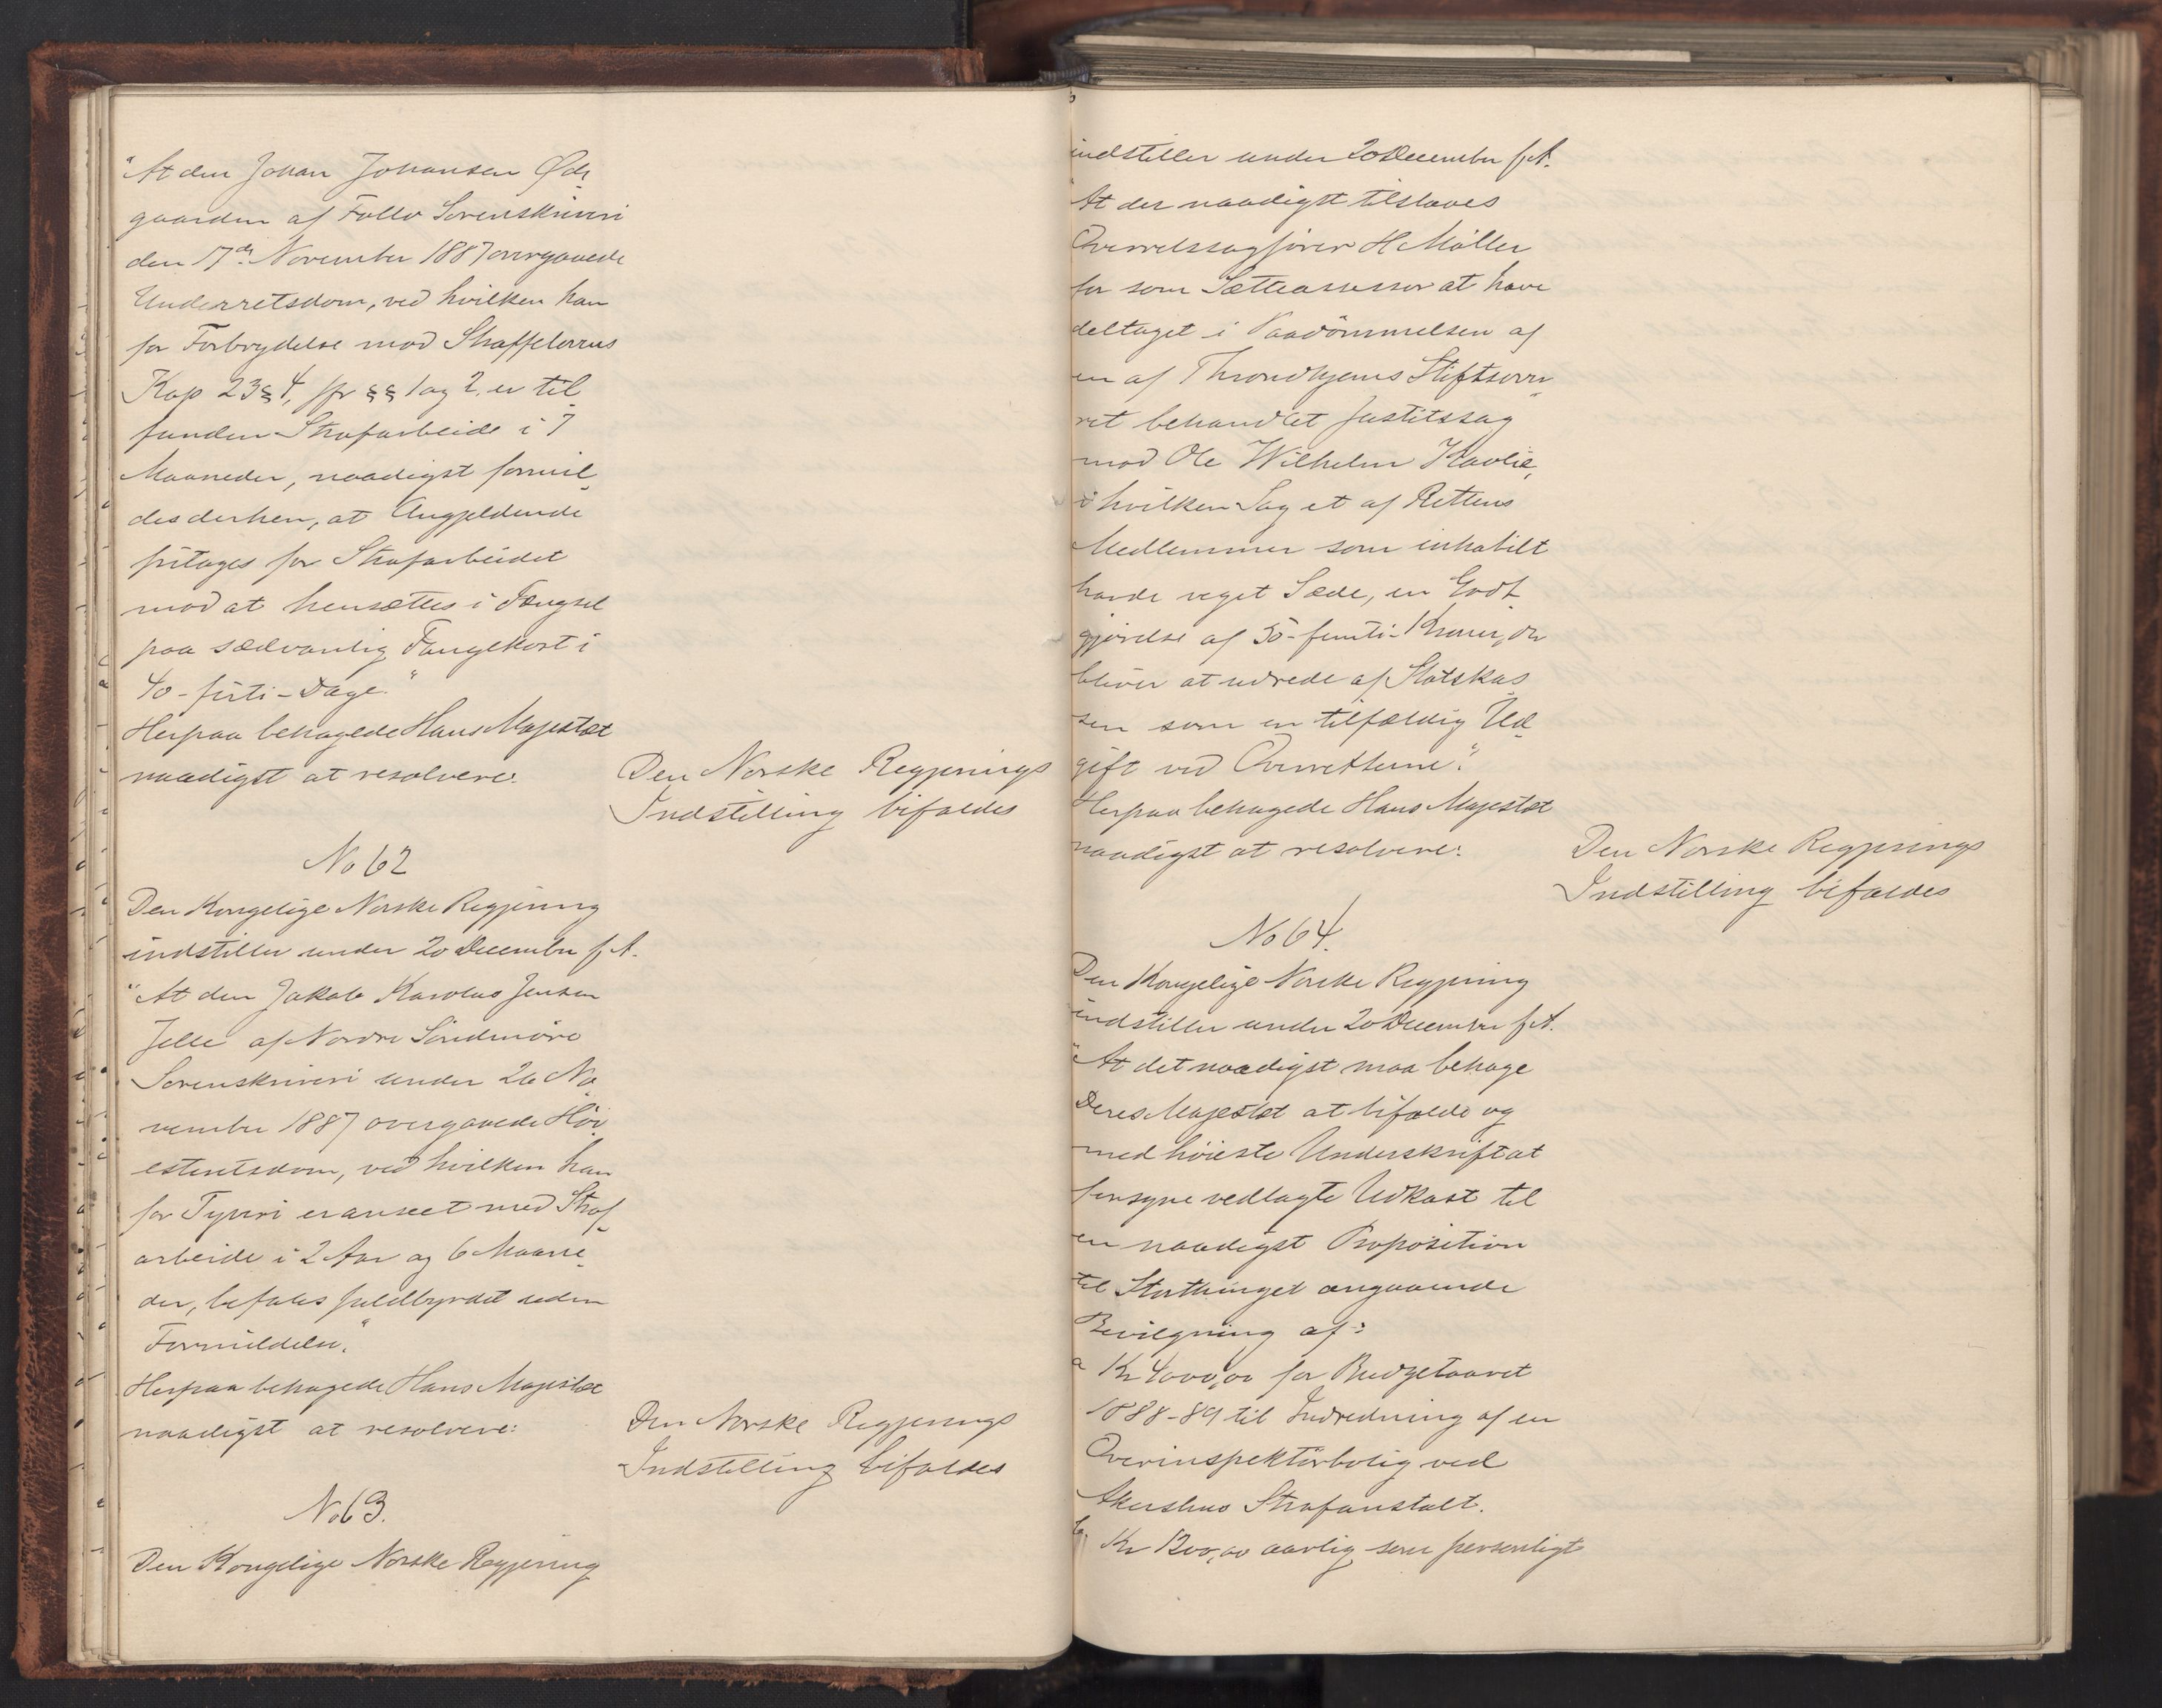 "At den Johan Johansen Øde
gaarden af Follo Sorenskriveri
den 17de November 1887 overgaaede
Underretsdom, ved hvilken han
for Forbrydelse mod Straffelovens
Kap 23 § 4, jfr §§ 1 og 2, er til
funden Strafarbeide i 7
Maaneder, naadigst formil
des derhen, at Angjeldende
fritages for Strafarbeidet
mod at hensættes i Fængsel
paa sædvanlig Fangekost i
40-firti-Dage."
Herpaa behagede Hans Majestæt
naadigst at resolvere:
Den Norske Regjerings
Indstilling bifaldes
No 62
Den Kongelige Norske Regjering
indstiller under 20 December f. A.
"At den Jakob Karolus Jensen
Jelle af Nordre Söndmöre
Sorenskriveri under 26 No
vember 1887 overgaaede Höi
esteretsdom, ved hvilken han
for Tyveri er anseet med Straf
arbeide i 2 Aar og 6 Maane
der, befales fuldbyrdet uden
Formildelse."
Herpaa behagede Hans Majestæt
naadigst at resolvere:
Den Norske Regjerings
Indstilling bifaldes
No 63.
Den Kongelige Norske Regjering
indstiller under 20 December f. A.
"At der naadigst tilstaaes
Overretssagförer H Möller
for som Sætteassessor at have
deltaget i Paadömmelsen af
en af Throndhjems Stiftsover
ret behandlet Justitssag
mod Ole Wilhelm Kavlie,
i hvilken Sag et af Rettens
Medlemmer som inhabilt
havde veget Sæde, en Godt
gjörelse af 50-femti-Kroner, der
bliver at udrede af Statskas
sen som en tilfældig Ud
gift ved Overretterne."
Herpaa behagede Hans Majestæt
naadigst at resolvere:
Den Norske Regjerings
Indstilling bifaldes
No 64.
Den Kongelige Norske Regjering
indstiller under 20 December f. A.
"At det naadigst maa behage
Deres Majestæt at bifalde og
med höieste Underskrift at
forsyne vedlagte Udkast til
en naadigst Proposition
til Storthinget angaaende
Bevilgning af:
a Kr 4000,00 for Budgetaaret
1888-89 til Indredning af en
Overinspektörbolig ved
Akershus Strafanstalt.
b, Kr 1200,00 aarlig som personligt